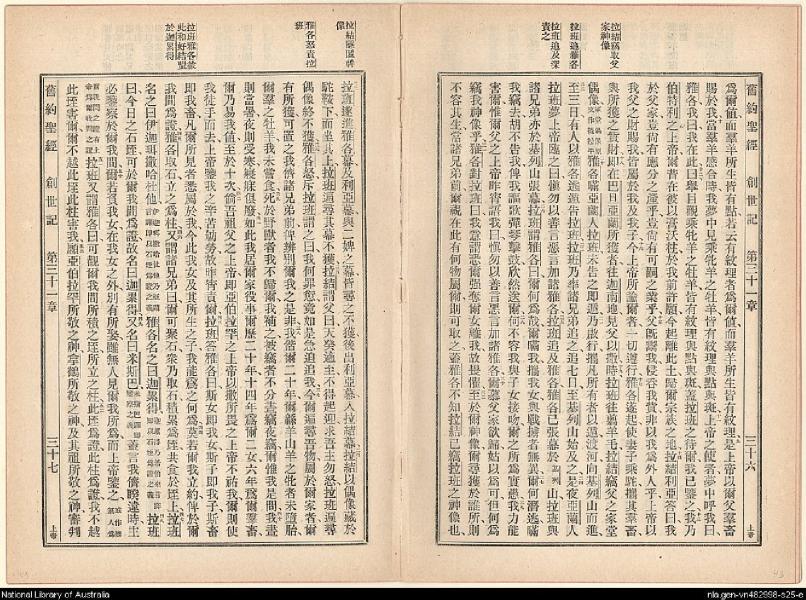 舊約聖經 創世記 第三十一章 三十六 上帝
為爾值而羣羊所生皆有點若云有紋理者為爾值而羣羊所生皆有紋理是上帝以爾父羣畜
賜於我當羣羊感合時我夢中見乘牝羊之牡羊皆有紋理與點與斑上帝之使者夢中呼我曰
雅各我曰我在此曰舉目觀乘牝羊之牡羊皆有紋理與點與斑蓋拉班之待爾我已鑒之我乃
伯特利之上帝爾昔在彼以膏沃柱於我前許願今起離此土歸爾宗族之地拉結利亞答曰我
於父家豈尚有應分之產乎豈尚有可嗣之業乎父既鬻我侵吞我貲非以我為外人乎上帝以
我父之財賜我皆屬於我及我子今上帝所諭爾者一切遵行雅各遂起使妻子乘駝攜其羣畜
與所獲之貨財即在巴旦亞蘭所獲者往迦南地見父以撒時拉班往翦羊毛拉結竊父之家堂
偶像雅各瞞亞蘭人拉班未告之即遁乃啟行攜凡所有者以遠渡河向基列山而進
至三日有人以雅各逃遁告拉班拉班乃率諸兄弟追之追七日至基列山始及之是夜亞蘭人
拉班夢上帝臨之曰慎勿以善言惡言加諸雅各拉班追及雅各雅各已張幕於山拉班與
諸兄弟亦於基列山張幕拉班謂雅各曰爾何為哉爾瞞我攜我女與戰擄者無異爾何潛逃瞞
我竊去胡不告我俾我謳歌彈琴擊鼓欣然送爾何不容我與子女接吻爾之所為實愚我力能
害爾惟爾父之上帝昨宵語我曰慎勿以善言惡言加諸雅各爾慕父家欲歸姑以為可但何為
竊我神像乎雅各對拉班曰我意謂恐爾強奪爾女離我故畏懼至於爾神像爾尋獲於誰所則
不容其生當諸兄弟前爾視在此有何物屬爾則可取之蓋雅各不知拉結已竊拉班之神像也
拉結竊取父家神像
拉班追雅各
拉班追及深責之
拉班遂進雅各幕及利亞幕與二婢之幕皆尋之不獲後出利亞幕入拉結幕拉結以偶像藏於
駝鞍下而坐其上拉班遍尋其幕不獲拉結謂父曰天癸適至不得起迎求吾主勿怒拉班遍尋
偶像終不獲雅各怒斥拉班謂之曰我何罪愆竟如是急迫追我今爾遍尋吾物屬於爾家者爾
有所獲可置之我儕諸兄弟前俾辨別爾我之是非我偕爾二十年爾綿羊山羊之牝者未墮胎
爾羣之牡羊我未嘗食死於野獸者我不歸爾我補之被竊者不分晝竊夜竊爾惟我是問我晝
則當暑夜則受寒寢寐俱廢如此我居爾家役事爾歷二十年十四年為爾二女六年為爾羣畜
爾乃易我值至於十次倘吾祖父之上帝即亞伯拉罕之上帝以撒所畏之上帝不祐我爾則使
我徒手而去上帝鑒我之辛苦劬勞故昨宵責爾拉班答雅各曰斯女即我女斯子即我子斯畜
即我畜凡爾所見者悉屬於我今此我女及其所生之子我能為之何為莫若爾我立約俾於爾
我間為證雅各取石立之為柱又謂諸兄弟曰爾可聚石衆乃取石積累為垤共食於垤上拉班
名之曰伊迦珥撒哈杜他雅各名之曰迦累得拉班
曰今日之石垤可於爾我間為證故名曰迦累得又名曰米斯巴善言我儕睽違時主
必鑒察於爾我間爾若負我女在我女之外別有所娶雖無人見爾我所為而上帝鑒之
拉班又謂雅各曰可觀我間所積之垤所立之柱此垤為證此柱為證我不越
此垤害爾爾不越此垤此柱害我願亞伯拉罕所敬之神拿鶴所敬之神及其祖所敬之神審判
舊約聖經 創世記 第三十一章 三十七 上帝
雅各怒責拉班
拉班雅各欲此和好結盟於迦累得
National Library of Australia
nla.gen-vn482998-s25-e